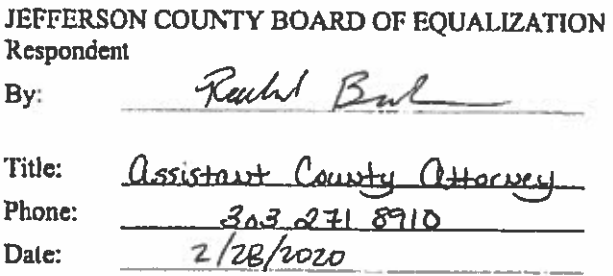 JEFFERSON COUNTY BOARD OF EQUALIZATION
Respondent
By:
Title: Assistant County Attorney
Phone: 303 271 8910
Date: 2/28/2020